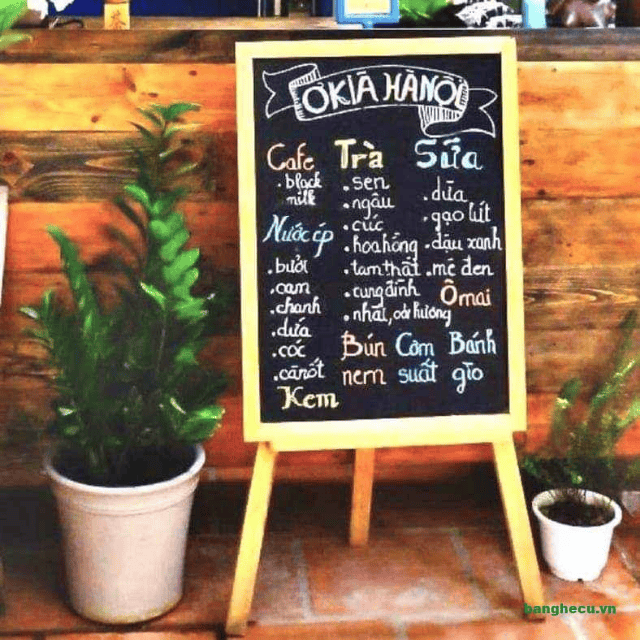 ÔKIA HÀNỘI
Cafe
. black
milk
Nước ép
. bưởi
. cam
. chanh
. dưa
. cóc
. cà rốt
Kem
Trà
. sen
. ngâu
. cúc
. hoa hồng
. tam thất
. cung đình
. nhài, oải hương
Sữa
. dừa
. gạo lứt
. đậu xanh
. mè đen
Ô mai
Bún nem
Cơm suất
Bánh gio
banghecu.vn